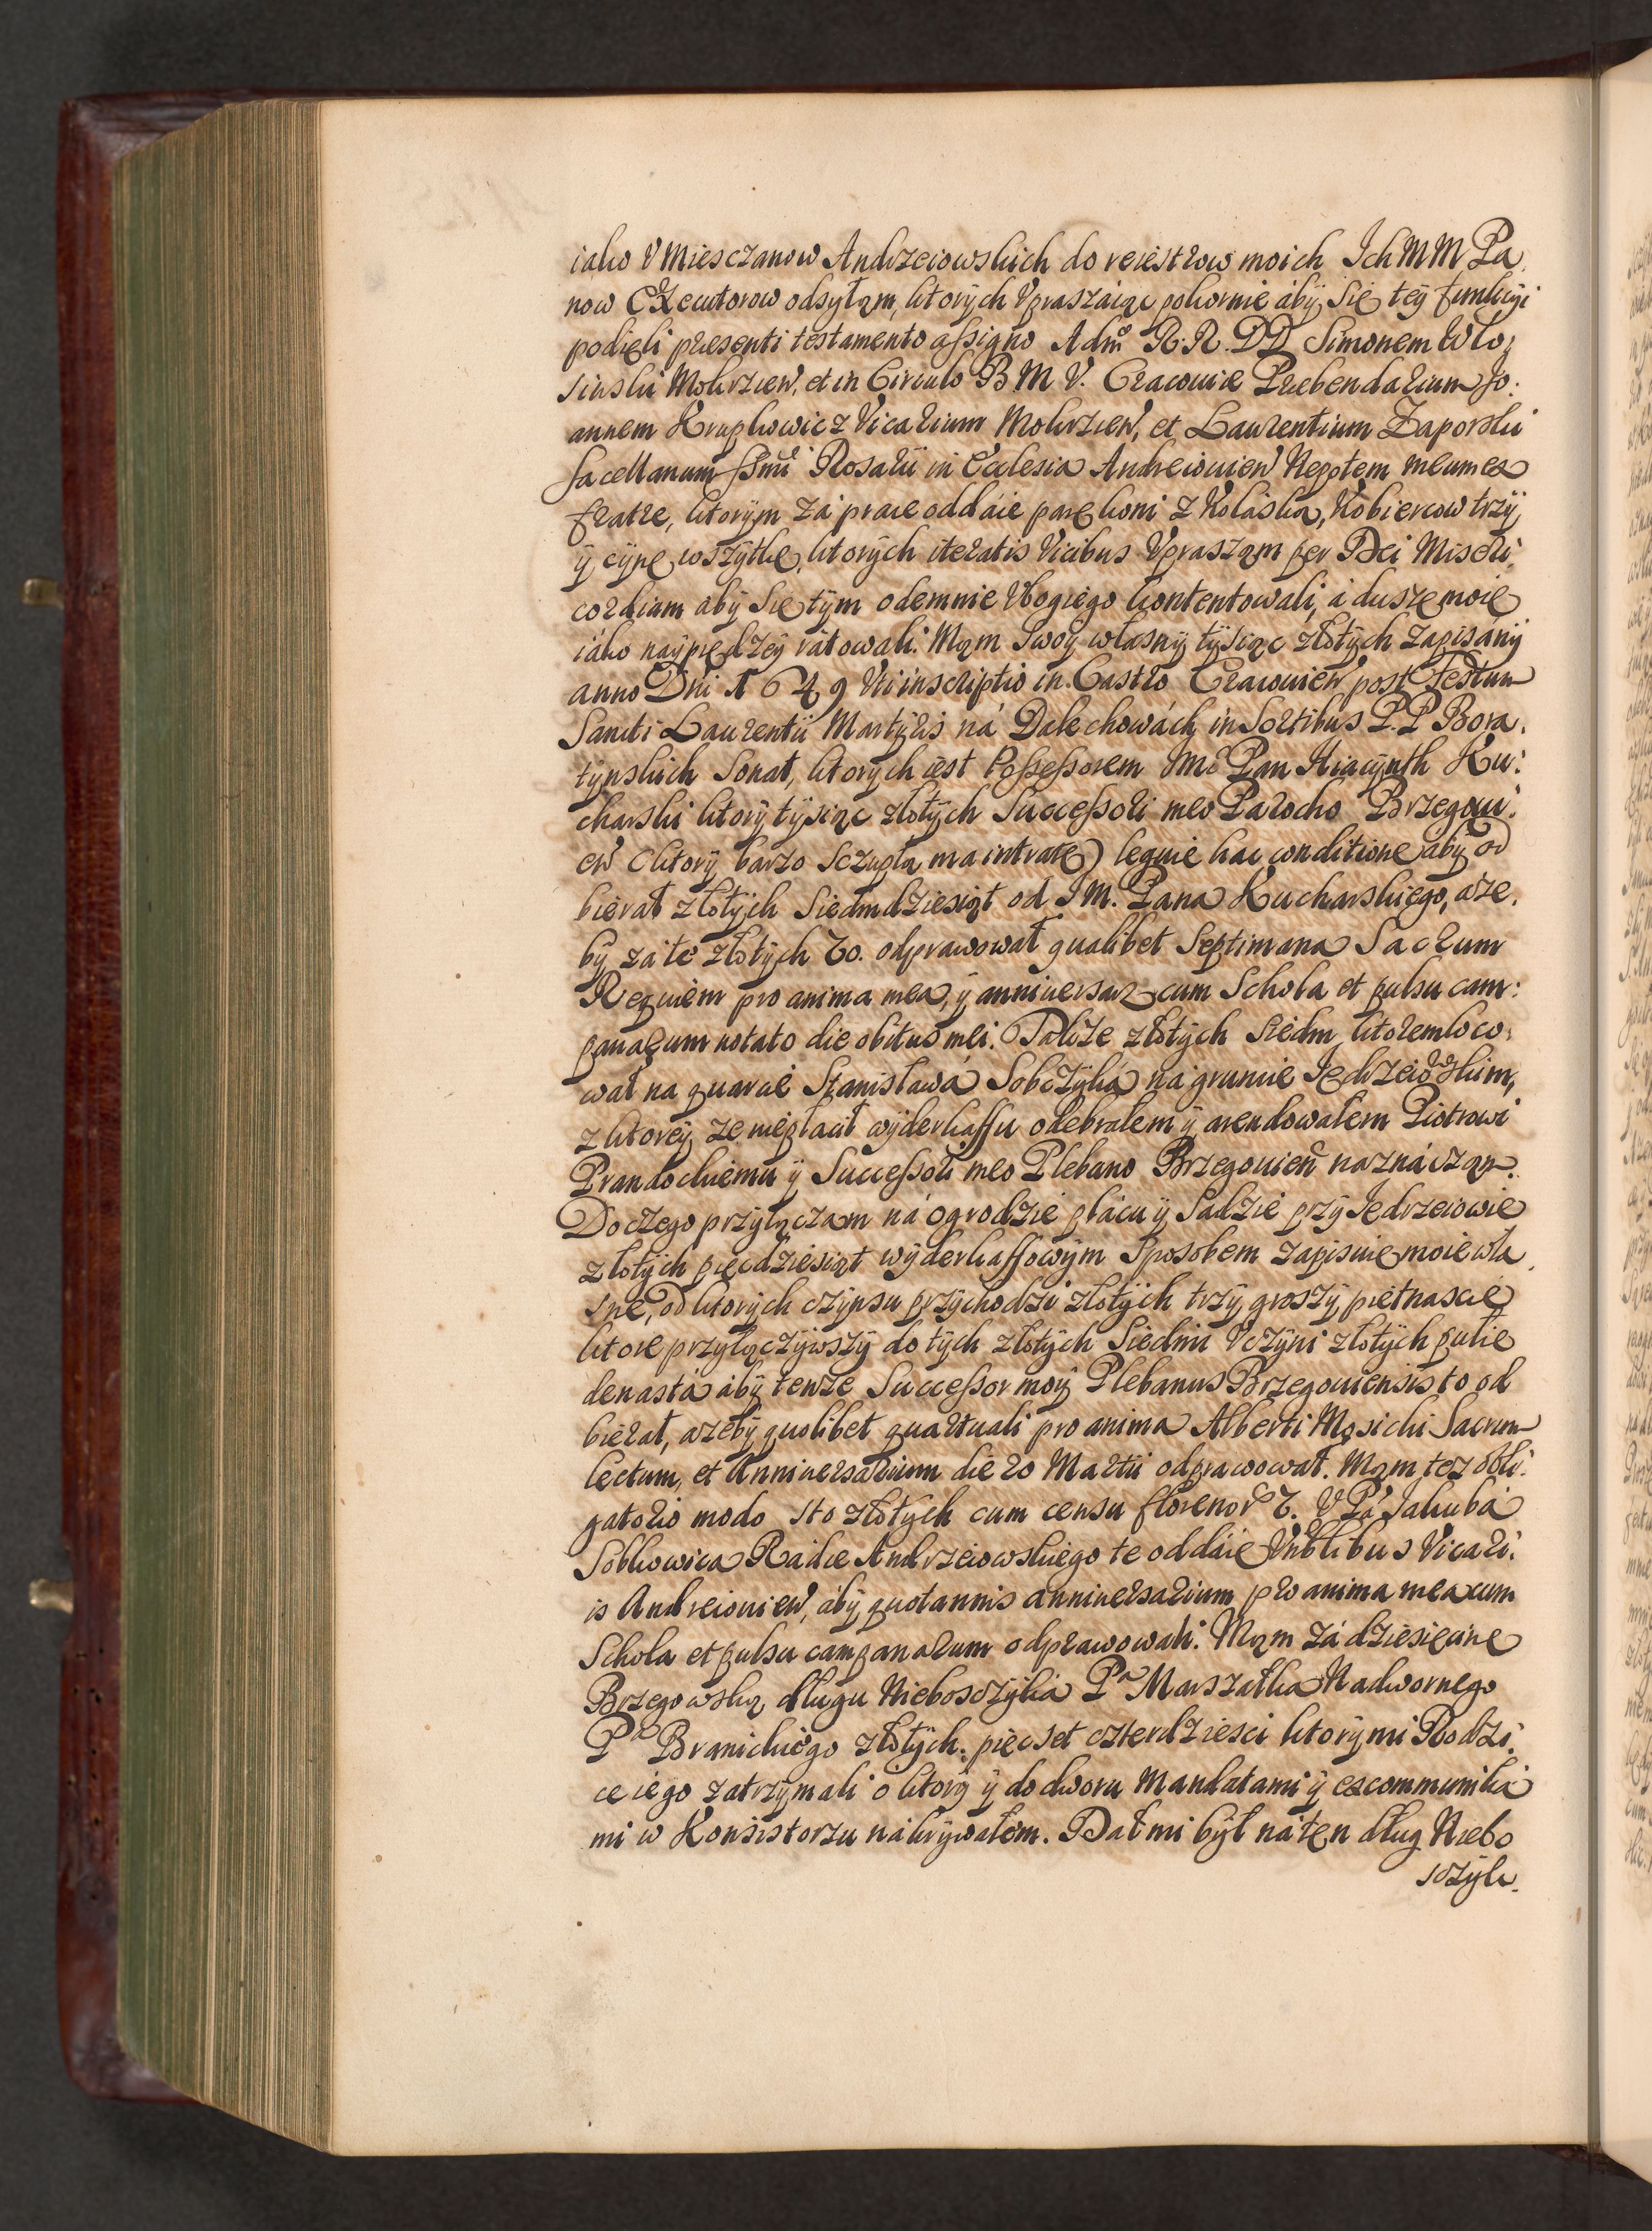 iako V Miesczanow Andrzeiowskich do reiestrow moich Ich MM Pa
now Exekutorow odsyłąm, ktorych Vpraszaiąc pokornie aby się tey funkcyi
podieli praesenti testamento assigno Adm R. R. DD Simonem Wło,
sinski Mokrzien, et in Circulo B M V. Cracoviae Praebendarium Jo:
annem Krupkowicz Vicarium Mokrzien, et Laurentium Zaporski
Sacellanum SSmi Rosarii in Ecclesia Andreiouien Nepotem meum ex
fratre, ktorym zá prace oddáie parę koni z Kolaską, Kobiercow trzy,
y cynę wszytkę, ktorych iteratis Vicibus Vprasząm per Dei Miseri,
cordiam aby się tym odemnie Vbogiego kontentowali, á duszę moię
iáko naypiedzey rátowali. Mąm swoy własny tysiąc złotych zapisány
anno Dni 1649 Vti inscriptio in Castro Cracouien post Festum
Sancti Laurentii Martyris ná Dalechowách in Sortibus P. P Bora,
tynskich Sonat, ktorych iest Possessorem Jmc Pan Hiacynth Ku:
charski ktory tysiąc złotych Successori meo Parocho Brzegoui:
en (ktory barzo sczupłą ma intratę) leguie hac conditione aby od
bierał złotych siedmdziesiąt od J M. Pana Kucharskiego, aże,
by zá te złotych 70. odprawował qualibet Septimana Sacrum
Requiem pro anima mea, y anniuersarz cum Schola et pulsu cam:
panarum notato die obitus mei. Także złotych siedm ktorem loco,
wał na quarcie Stanisława Sobczyka ná gruncie Jędrzeiowskim,
z ktorey ze niepłacił wyderkaffu odebrałem y arendowałem Piotrowi
Prandockiemu y Successori meo Plebano Brzegouien naznácząm.
Do czego przyłączam ná ogrodzie płacu y Sadzie przy Jędrzeiowie
złotych pięcdziesiąt wyderkaffowym sposobem zapisuię moie wła,
sne, od ktorych czynsu przychodzi złotych trzy, groszy piętnascie
ktore przyłączywszy do tych złotych Siedmi Vczyni złotych pułie
denasta aby tenze Successor moy Plebanus Brzegouiensis to od
bierał, ażeby quolibet quartuali pro anima Alberti Mosicki Sacrum
lectum, et Anniuersarium die 20 Martii odprawował. Mąm tez obli:
gatorio modo sto złotych cum censu florenor 7. V Pa Jakuba
Sobkowica Raice Andrzeiowskiego te oddáie Vnblibus Vicari:
is Andreiouien, aby quotannis anniuersarium pro anima mea cum
Schola et pulsu campanarum odprawowali. Mąm zá dziesięcinę
Brzegowską długu Nieboszczyka Pa Marszałka Nadwornego
Pa Branickiego złotych pięcset czterdziesci ktorymi Rodzi,
ce iego zatrzymali o ktory y do dworu Mandatami y excommunika
mi w Konsistorzu nákrywałem. Dał mi był ná ten dług Niebo
sczyk.